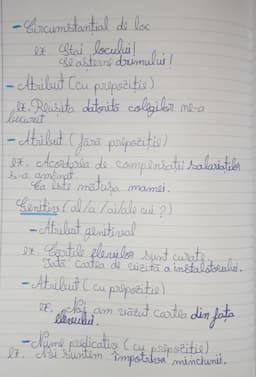 - Circumstanțial de loc
ex Stai locului!
Se așterne drumului!
- Atribut (cu prepoziție)
ex. Reușita datorită colegilor ne-a
bucurat.
- Atribut (fără prepoziție)
ex. Acordarea de compensații salariaților
s-a amânat.
Ea este mătușa mamei.
Genitiv (al/a/ai/ale cui?)
- Atribut genitival
ex. Cărțile elevilor sunt curate.
Iată cartea de vizită a instalatorului.
- Atribut (cu prepoziție)
ex. Noi am văzut cartea din fața
elevului.
- Nume predicativ (cu prepoziție)
ex. Noi suntem împotriva minciunii.